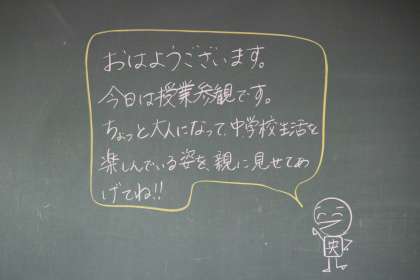 おはようございます。
今日は授業参観です。
ちょっと大人になって、中学校生活を
楽しんでいる姿を、親に見せてあ
げてね!!
央